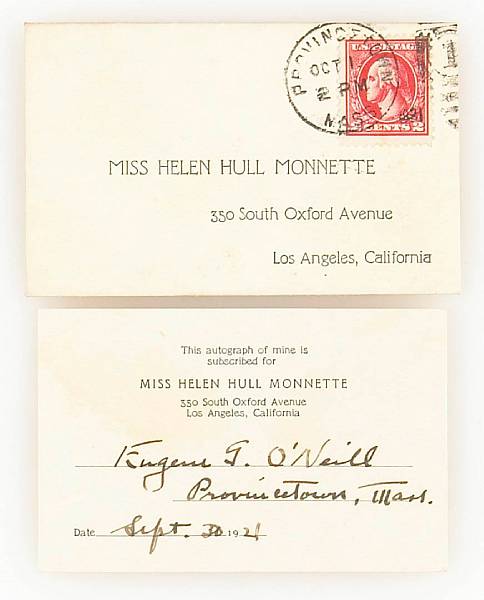 PROVINCETOWN
OCT 1
2 PM
MASS.
U.S. POSTAGE
2 CENTS 2
MISS HELEN HULL MONNETTE
350 South Oxford Avenue
Los Angeles, California
This autograph of mine is
subscribed for
MISS HELEN HULL MONNETTE
350 South Oxford Avenue
Los Angeles, California
Eugene G. O'Neill
Provincetown, Mass.
Date Sept. 30 1921